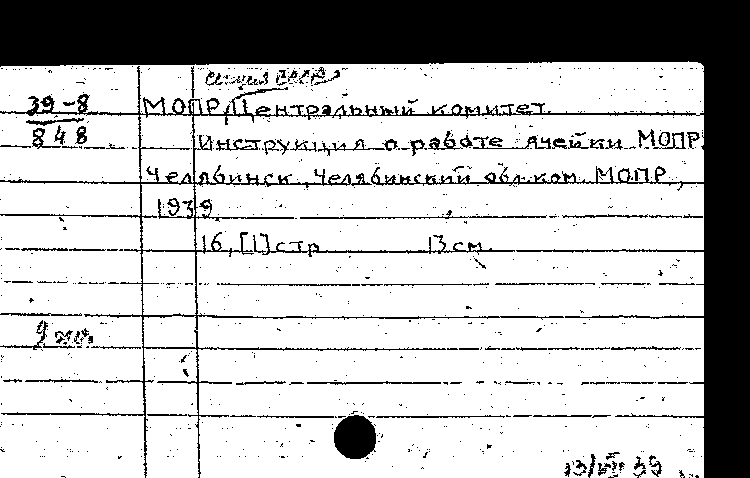 секция СССР
39-8
848
МОПР, Центральный комитет.
Инструкция о работе ячейки МОПР.
Челябинск, Челябинский обл. ком. МОПР,
1939.
16, [1] стр 13 см.
13/VIII 39